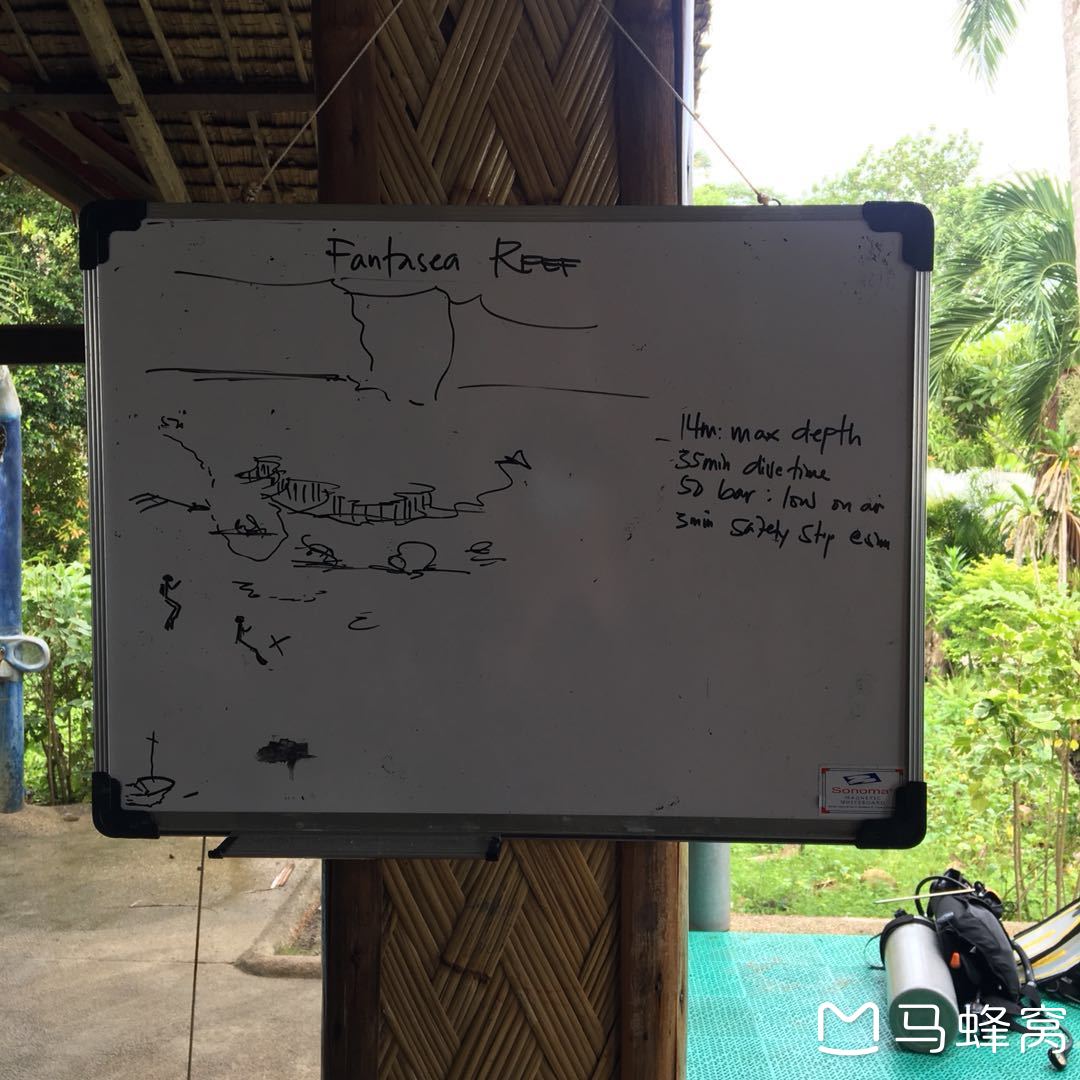 Fantasea REEF
14m: max depth
35min dive time
50 bar: low on air
3min safety stop @5m
Sonoma
MAGNETIC
WHITEBOARD
马蜂窝